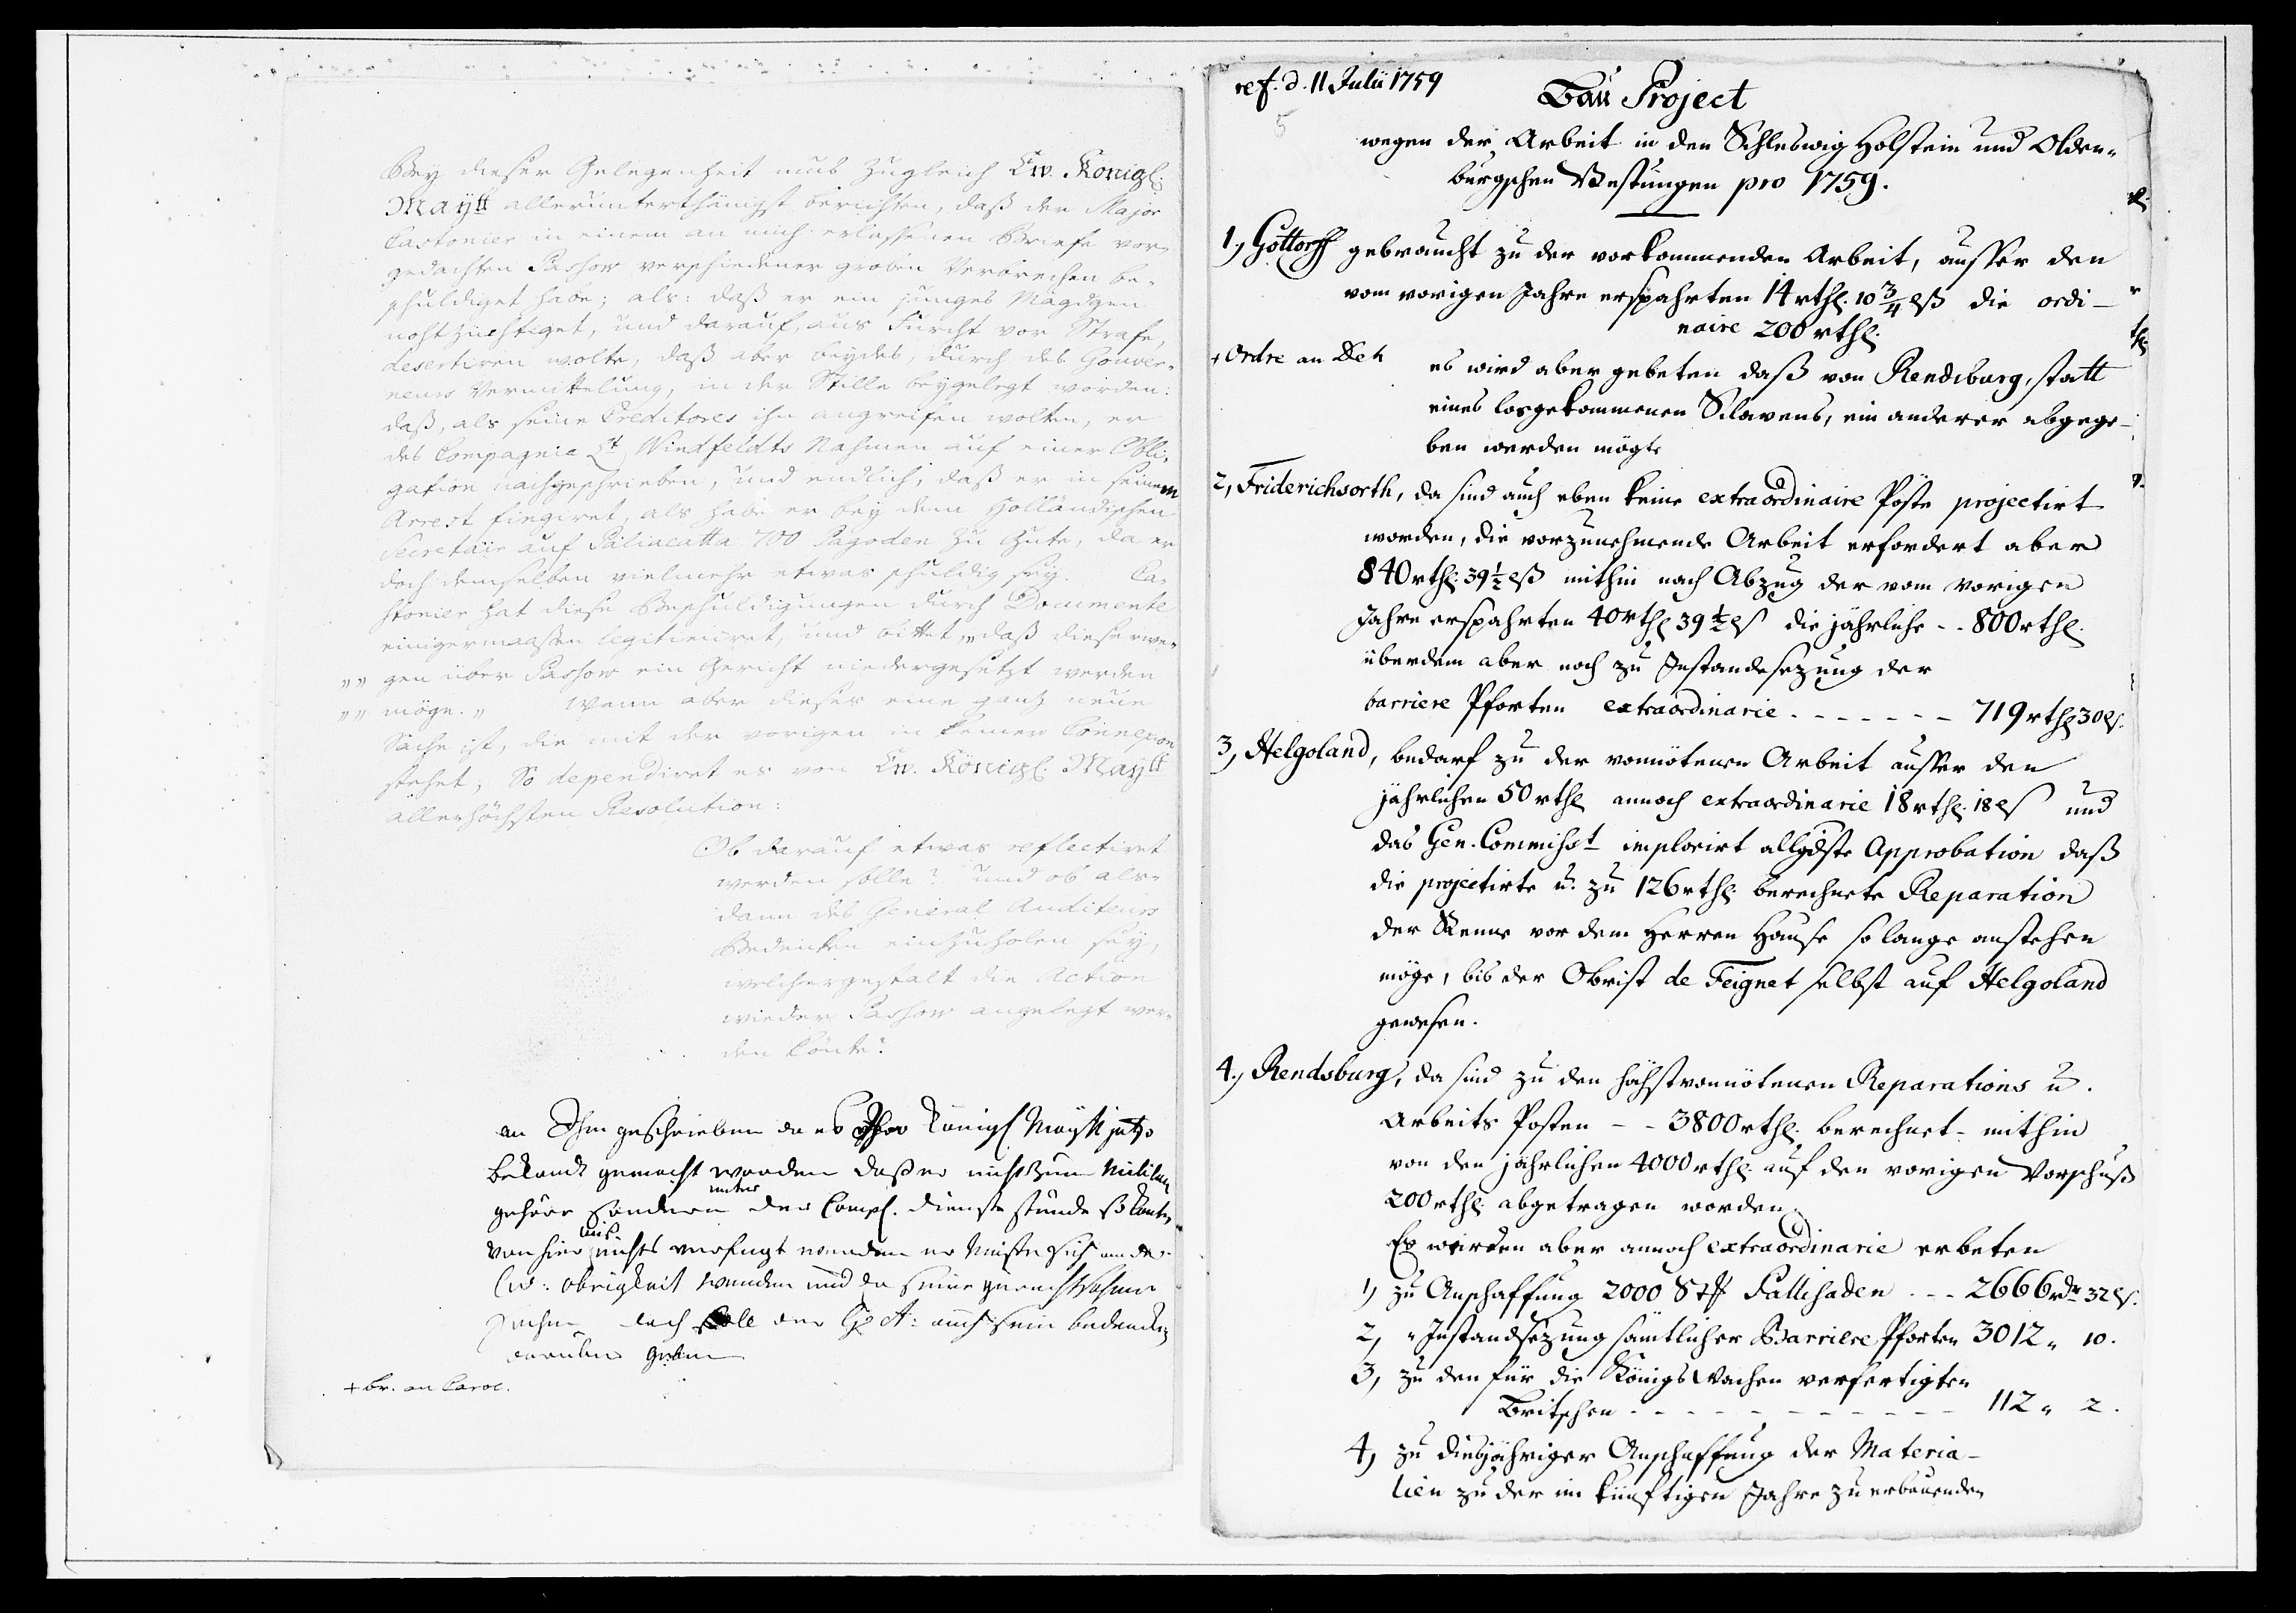 Bey dieser Gelegenheit mus zugleich Ew. Königl:
Maytt allerunterthänigst berichten, daß der Major
Castonier in einem an mich erlassenen Briefe vor-
gedachten Passow verschiedener groben Verbrechen be-
schuldiget habe; als: daß er ein junges Mägdgen
nohtzüchtiget, und darauf, aus Furcht vor Strafe,
desertiren wolte, daß aber beydes, durch des Gouver-
neurs Vermittelung, in der Stille beygelegt worden:
daß, als seine Creditores ihn angreifen wolten, er
des Compagnie Lt Windfeldts Nahmen auf einer Obli-
gation nachgeschrieben, und endlich, daß er in seinem
Arrest fingiret, als habe er bey dem Holländischen
Secretair auf Paliacatta 700 Pagoden zu gute, da er
doch demselben vielmehr etwas schuldig sey. Ca-
stonier hat diese Beschuldigungen durch Documente
einigermaassen legitimiret, und bittet, „daß dieserwe-
„„ gen über Passow ein Gericht niedergesetzt werden
„„ möge.„ Wenn aber dieses eine ganz neue
Sache ist, die mit der vorigen in keiner Connexion
stehet; So dependiret es von Ew. Königl. Maytt
allerhöchsten Resolution:
Ob darauf etwas reflectiret
werden solle? und ob als-
dann des General Auditeurs
Bedencken einzuholen sey,
welchergestalt die Action
wieder Passow angelegt wer-
den könte?
an Ihm geschrieben da es Ihro Königl Maytt jetzo
bekandt gemacht worden daß er nicht zum Militair
gehöre sondern unter der Comp. dienste stünde so könte
von hier aus nichts verfügt werden er müste sich an de
Civ: obrigkeit wenden und da seine
suchen doch soll der G A: auch sein bedencken
darüber geben
+ br. an Caroc.
ref. d. 11 Julii 1759
5
Bau Project
wegen der Arbeit in den Schleswig Holstein und Olden-
burgschen Vestungen pro 1759.
1, Gottorff gebraucht zu der vorkommenden Arbeit, ausser den
vom vorigen Jahre erspahrten 14 rthl. 10 3/4 lß die ordi-
naire 200 rthl.
+ Ordre an Deh
es wird aber gebeten daß von Rendsburg, statt
eines losgekommenen Sclavens, ein anderer abgege-
ben werden mögte
2, Friderichsorth, da sind auch eben keine extraordinaire Poste projectirt
worden, die vorzunehmende Arbeit erfordert aber
840 rthl: 39 1/2 lß mithin nach Abzug der vom vorigen
Jahre erspahrten 40 rthl 39 1/2 lß die jährliche - - 800 rthl.
überdem aber noch zu Instandesezung der
barriere Pforten extraordinarie - - - - - - - 719 rthl 30 lß.
3, Helgoland, bedarf zu der vonnötenen Arbeit ausser den
jährlichen 50 rthl annoch extraordinarie 18 rthl. 18 lß und
das Gen. Commisst implorirt allgdste Approbation daß
die projectirte u. zu 126 rthl: berechnete Reparation
der Renne vor dem Herren Hause so lange anstehen
möge, bis der Obrist de Feignet selbst auf Helgoland
gewesen.
4., Rendsburg, da sind zu den höchstvonnötenen Reparations u.
Arbeits Posten - - 3800 rthl. berechnet - mithin
von den jährlichen 4000 rthl: auf den vorigen Vorschuß
200 rthl. abgetragen worden.
Es werden aber annoch extraordinarie erbeten
1) zu Anschaffung 2000 Stk Pallisaden - - - 2666 rdr 32 lß.
2, „ Instandsezung sämtlicher Barriere Pforten 3012 „ 10.
3, zu den für die Königs Wachen verfertigten
Britschen - - - - - - - - - - - 112 „ 2.
4, zu diesjähriger Anschaffung der Materia-
lien zu der im künftigen Jahre zu erbauenden